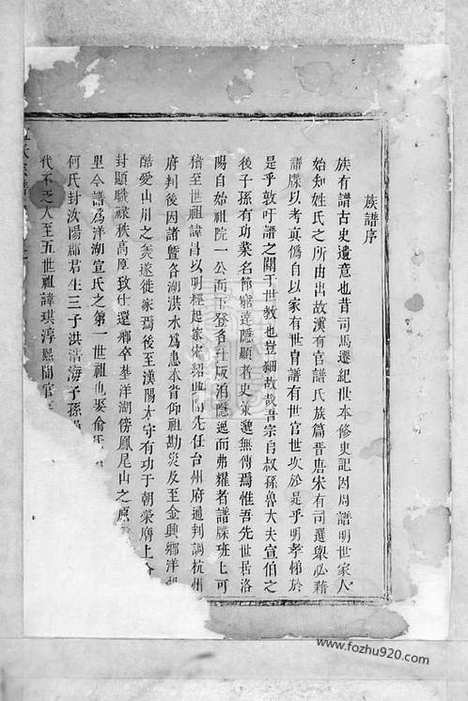 族譜序
族有譜古史遺意也昔司馬遷紀世本修史記因周譜明世家人
始知姓氏之所由出故漢有官譜氏族篇晉唐宋有司選舉必藉
譜牒以考真僞自以家有世胄譜有世官世次於是乎明孝悌於
是乎敦吁譜之關于世教也豈細故哉吾宗自叔孫魯大夫宣伯之
後子孫有功業名節窮達隱顯者史乘邈無傳焉惟吾先世居洛
陽自始祖院一公而下登名仕版泊隱遯而弗耀者譜牒班上可
稽至世祖諱昌以明經起家宋紹興間先任台州府通判調杭州
府判後因諸暨各湖洪水爲患奉省仰祖勘災及至金興鄉洋
酷愛山川之美遂徙家焉後至漢陽太守有功于朝榮府上
封顯職祿秩高厚致仕還鄉卒葬洋湖傍鳳尾山之原
里今譜爲洋湖宣氏之第一世祖也娶俞氏
何氏封汝陽郡君生三子洪浩海子孫
代不乏人至五世祖諱琪淳熙間官
www.fozhu920.com